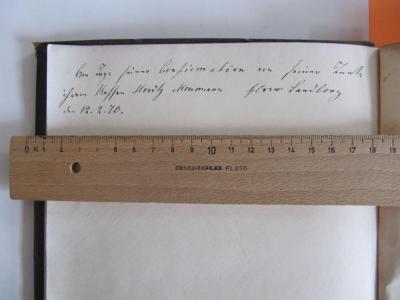 Am Tage seiner Confirmation von seiner Tante
ihrem Neffen Moritz Neumann Flora Sandberg
den 12.2.70.
0 1 2 3 4 5 6 7 8 9 10 11 12 13 14 15 16 17 18 19
RUMOLD FL 250